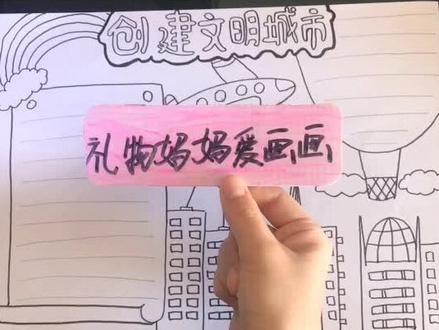 创建文明城市
礼物妈妈爱画画